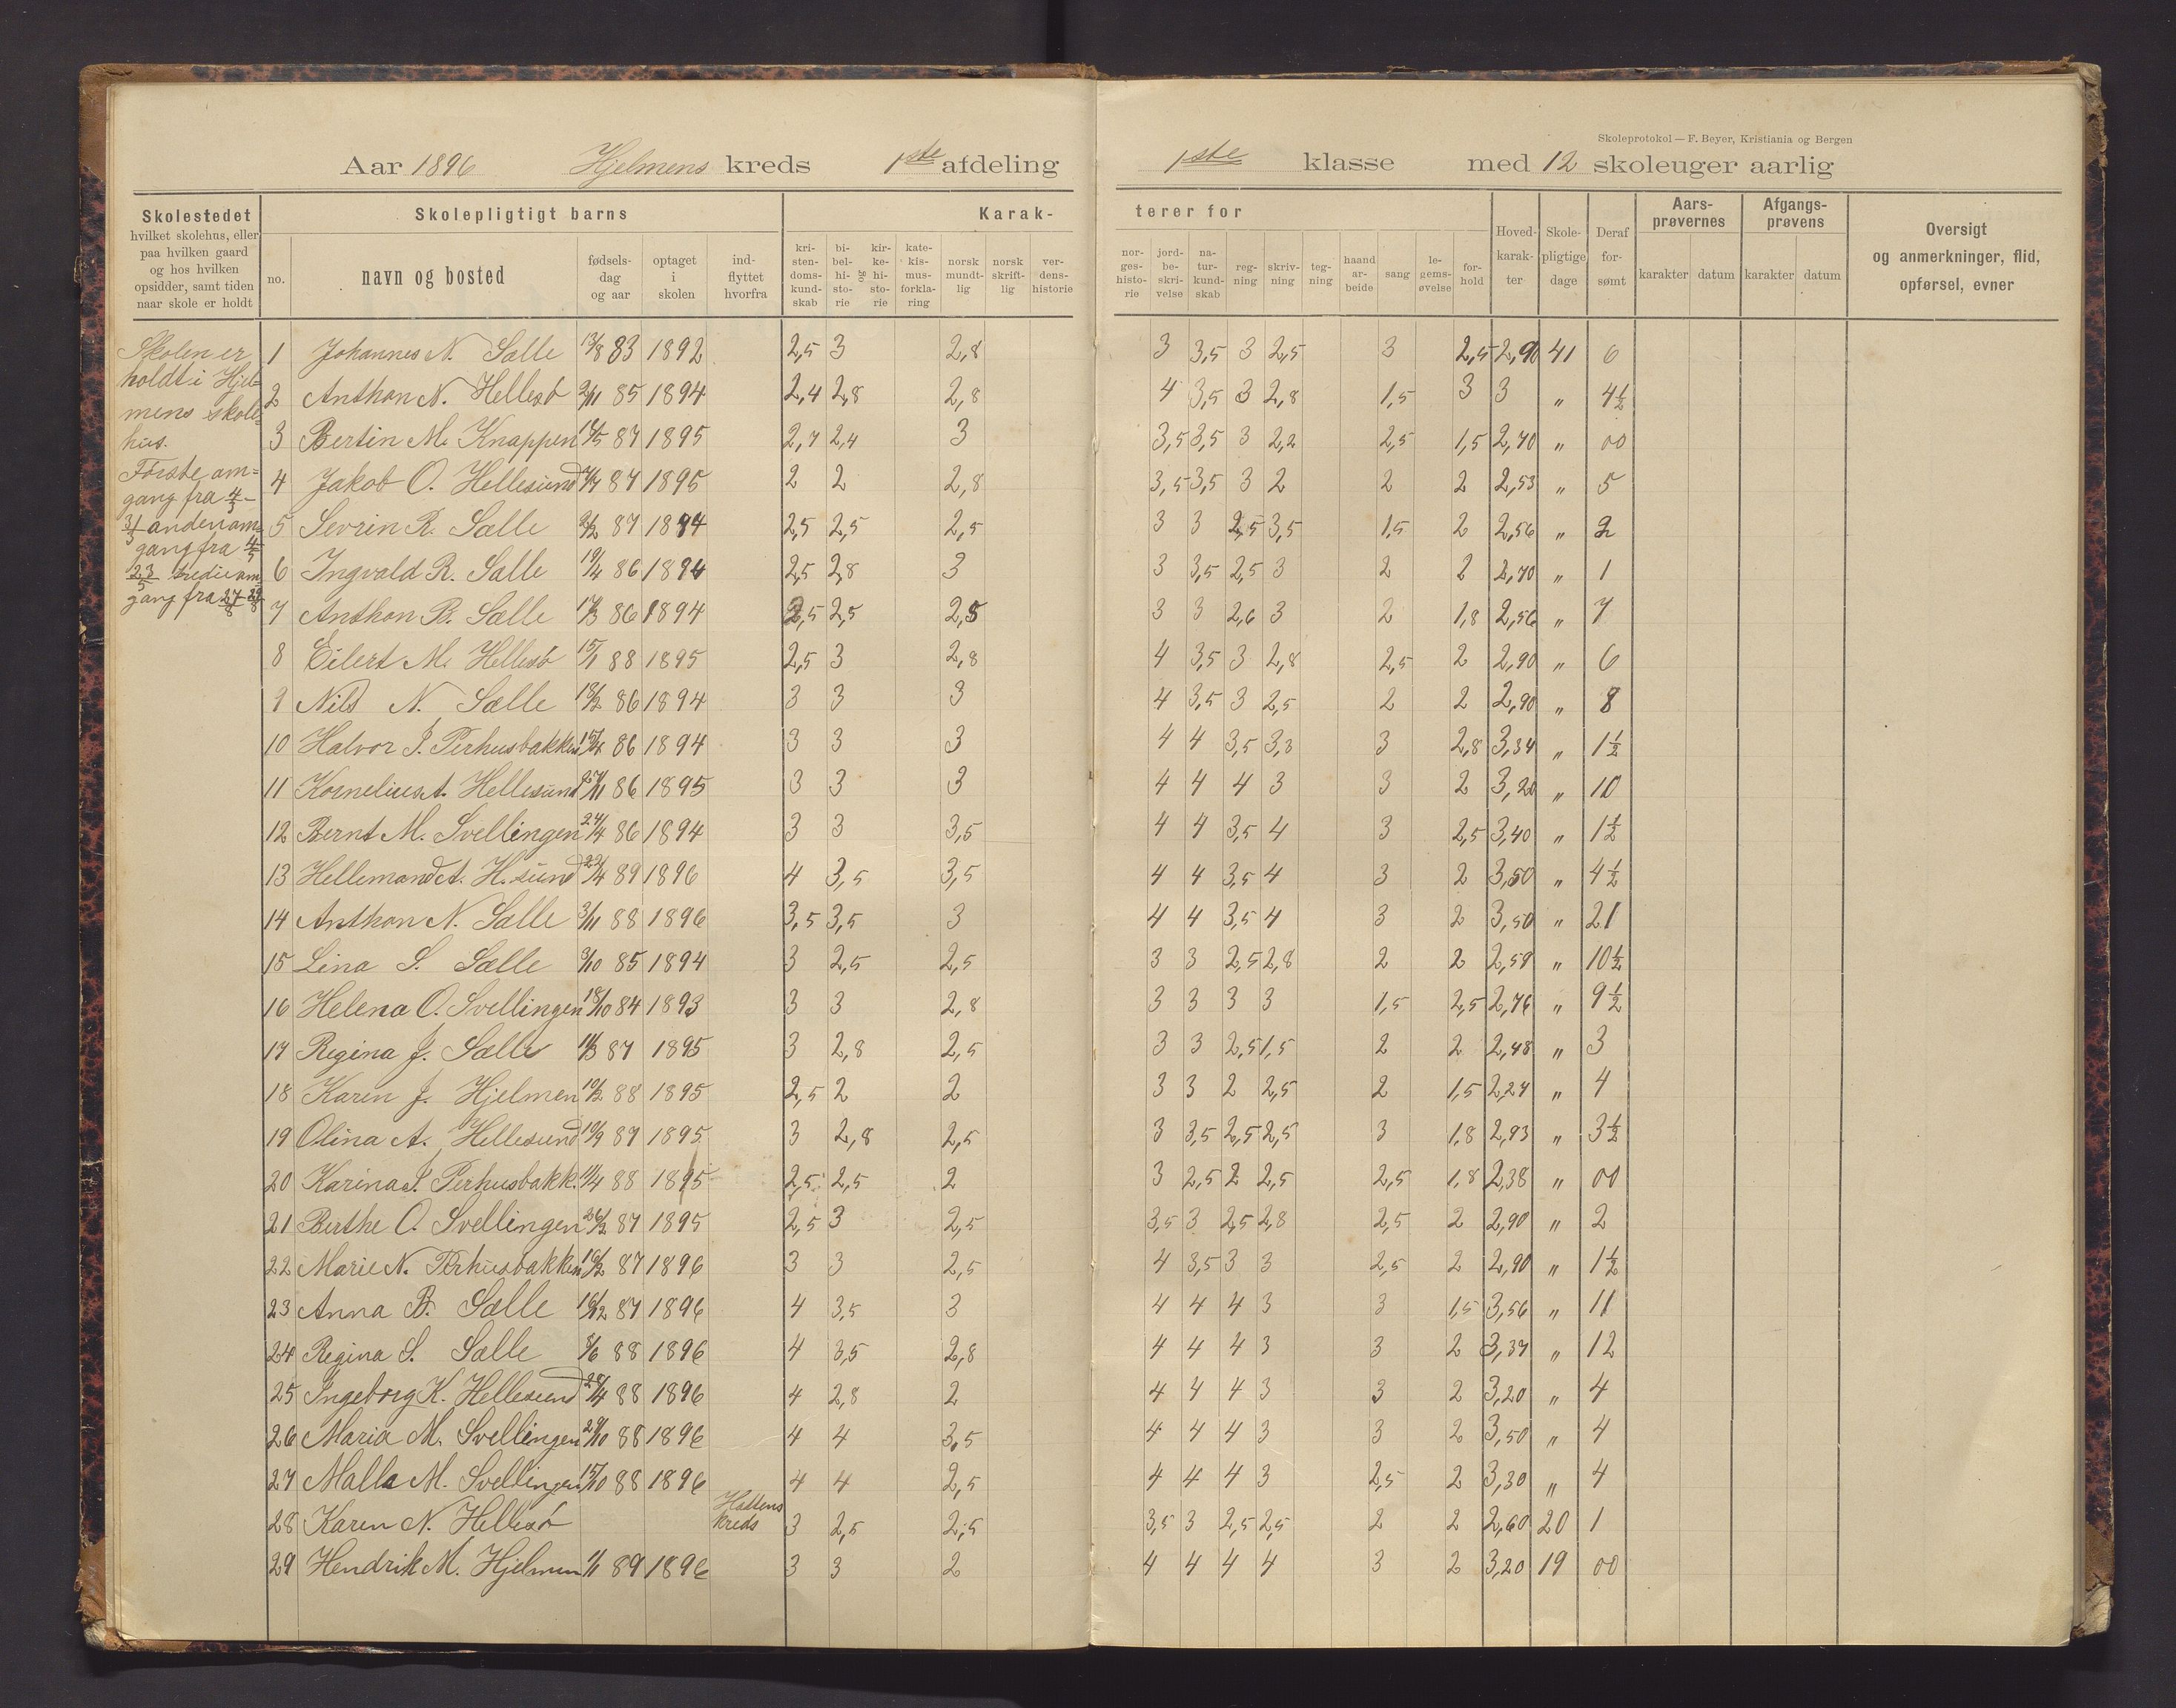 Skoleprotokol — F. Beyer, Kristiania og Bergen
Aar 1896 Hjelmens kreds 1ste afdeling 1ste klasse med 12 skoleuger aarlig
Skolestedet
hvilket skolehus, eller
paa hvilken gaard
og hos hvilken
opsidder, samt tiden
naar skole er holdt
Skolepligtigt barns
no. navn og bosted
fødsels-
dag
og aar
optaget
i
skolen
ind-
flyttet
hvorfra
Karak-
kri-
sten-
doms-
kund-
skab
bi-
bel-
hi-
sto-
rie
og
kir-
ke-
hi-
sto-
rie
kate-
kis-
mus-
forkla-
ring
norsk
mundt-
lig
norsk
skrift-
lig
ver-
dens-
historie
terer for
nor-
ges-
histo-
rie
jord-
be-
skri-
velse
na-
tur-
kund-
skab
reg-
ning
skriv-
ning
teg-
ning
haand
ar-
beide
sang
le-
gems-
øvelse
for-
hold
Hoved-
karak-
ter
Skole-
pligtige
dage
Deraf
for-
sømt
Aars-
prøvernes
karakter datum
Afgangs-
prøvens
karakter datum
Oversigt
og anmerkninger, flid,
opførsel, evner
Skolen er
holdt i Hjel=
mens skole=
hus.
Første om=
gang fra 4/3 -
31/3 anden om=
gang fra 4/5
23/5 tredie om=
gang fra 27/8 29/8
1 Johannes N. Sælle 13/8 83 1892 2,5 3 2,8 3 3,5 3 2,5 3 2,5 2,90 41 6
2 Anthon N. Hellesö 2/11 85 1894 2,4 2,8 2,8 4 3,5 3 2,8 1,5 3 3 " 4½
3 Bertin M. Knappen 14/5 87 1895 2,7 2,4 3 3,5 3,5 3 2,2 2,5 1,5 2,70 " 00
4 Jakob O. Hellesund 87 1895 2 2 2,8 3,5 3,5 3 2 2 2 2,53 " 5
5 Sevrin R. Sælle 87 1894 2,5 2,5 2,5 3 3 2,5 3,5 1,5 2 2,56 " 2
6 Ingvald R. Sælle 19/4 86 1894 2,5 2,8 3 3 3,5 2,5 3 2 2 2,70 " 1
7 Anthon B. Sælle 17/3 86 1894 2,5 2,5 2,5 3 3 2,6 3 2 1,8 2,56 " 7
8 Eilert M. Hellesö 15/1 88 1895 2,5 3 2,8 4 3,5 3 2,8 2,5 2 2,90 " 6
9 Nils N. Sælle 18/2 86 1894 3 3 3 4 3,5 3 2,5 2 2 2,90 " 8
10 Halvor J. Perhusbakken 15/4 86 1894 3 3 3 4 4 3,5 3,3 3 2,8 3,34 " 1½
11 Kornelius A. Hellesund 27/11 86 1895 3 3 3 4 4 4 3 3 2 3,20 " 10
12 Bernt M. Svellingen 24/4 86 1894 3 3 3,5 4 4 3,5 4 3 2,5 3,40 " 1½
13 Hellemand A. H.sund 22/4 89 1896 4 3,5 3,5 4 4 3,5 4 3 2 3,50 " 4½
14 Anthon N. Sælle 3/11 88 1896 3,5 3,5 3 4 4 3,5 4 3 2 3,50 " 21
15 Lina S. Sælle 9/10 85 1894 3 2,5 2,5 3 3 2,5 2,8 2 2 2,59 " 10½
16 Helena O. Svellingen 18/10 84 1893 3 3 2,8 3 3 3 3 1,5 2,5 2,76 " 9½
17 Regina J. Sælle 11/3 87 1895 3 2,8 2,5 3 3 2,5 1,5 2 2 2,48 " 3
18 Karen J. Hjelmen 10/2 88 1895 2,5 2 2 3 3 2 2,5 2 1,5 2,27 " 4
19 Olina A. Hellesund 10/9 87 1895 3 2,8 2,5 3 3,5 2,5 2,5 3 1,8 2,93 " 3½
20 Karina J. Perhusbakk. 11/4 88 1895 2,5 2,5 2 3 2,5 2 2,5 2,5 1,8 2,38 " 00
21 Berthe O. Svellingen 26/2 87 1895 2,5 3 2,5 3,5 3 2,5 2,8 2,5 2 2,90 " 2
22 Marie N. Perhusbakken 16/2 87 1896 3 3 2,5 4 3,5 3 3 2,5 2 2,90 " 1½
23 Anna B. Sælle 16/12 87 1896 4 3,5 3 4 4 4 3 3 1,5 3,56 " 11
24 Regina S. Sælle 8/6 88 1896 4 3,5 2,8 4 4 4 3 3 2 3,37 " 12
25 Ingeborg K. Hellesund 28/4 88 1896 4 2,8 2 4 4 4 3 3 2 3,20 " 4
26 Maria M. Svellingen 29/10 88 1896 4 4 3,5 4 4 4 3 3 2 3,50 " 4
27 Malla M. Svellingen 15/10 88 1896 4 4 2,5 4 4 4 3 2,5 2 3,30 " 4
28 Karen N. Hellesö Haltens kreds 3 2,5 2,5 3,5 3 2,5 2,5 2 2 2,60 20 1
29 Hendrik M. Hjelmen 1/1 89 1896 3 3 2 4 4 4 4 3 2 3,20 19 00